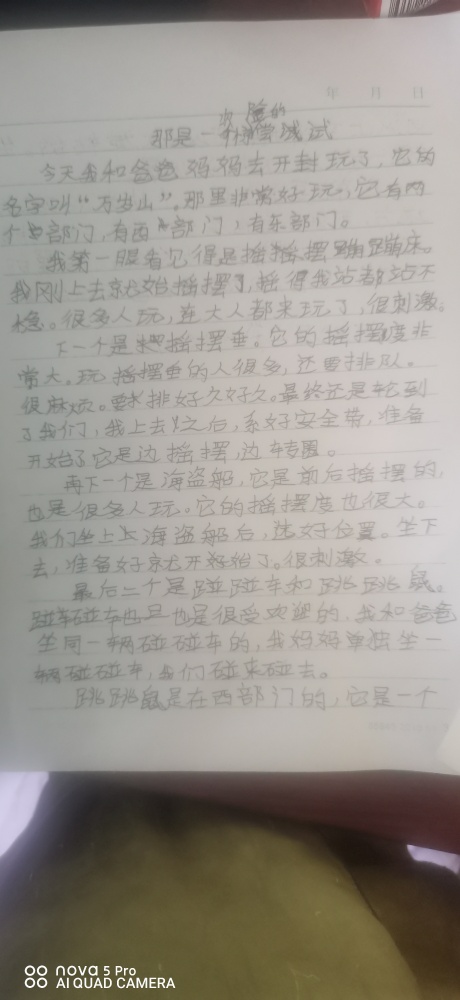 年 月 日
次 险的
那是一 尝试试
今天我和爸爸妈妈去开封玩了，它的
名字叫“万岁山”。那里非常好玩，它有两
个 部门，有西部门，有东部门。
我第一眼看它得是摇摇摆 蹦床。
我刚上去就始摇摆了，摇得我站都站不
稳。很多人玩，连大人都来玩了，很刺激。
下一个是 摇摆垂。它的摇摆度非
常大。玩摇摆垂的人很多，还要排队。
很麻烦。要 排好久好久。最终还是轮到
了我们，我上去 之后，系好安全带，准备
开始了它是边摇摆，边转圈。
再下一个是海盗船，它是前后摇摆的，
也是很多人玩。它的摇摆度也很大。
我们坐上上海盗船后，选好位置。坐下
去，准备好就开好始了。很刺激。
最后二个是碰碰车和跳跳鼠。
碰碰车也是也是很受欢迎的，我和爸爸
坐同一辆碰碰车的，我妈妈单独坐一
辆碰碰车，我们碰来碰去。
跳跳鼠是在西部门的，它是一个
nova 5 Pro
AI QUAD CAMERA